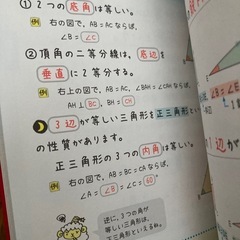 ① 2つの底角は等しい。
例 右の図で、AB=ACならば、
∠B=∠C
② 頂角の二等分線は、底辺を
垂直に2等分する。
例 右上の図で、AB=AC、∠BAH=∠CAHならば、
AH⊥BC、BH=CH
3辺が等しい三角形を正三角形
の性質があります。
正三角形の3つの内角は等しい。
例 右の図で、AB=BC=CAならば、
∠A=∠B=∠C=60°
逆に、3つの角が
等しい三角形は、
正三角形といえるね。